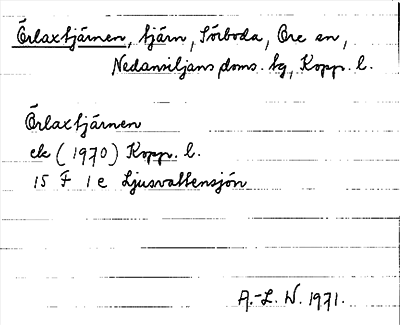 Örlaxtjärnen, tjärn, Sörboda, Ore sn,
Nedansiljans doms. tg, Kopp. l.
Örlaxtjärnen
ek (1970) Kopp. l.
15 F 1 e Ljusvattensjön
A.-L. W. 1971.